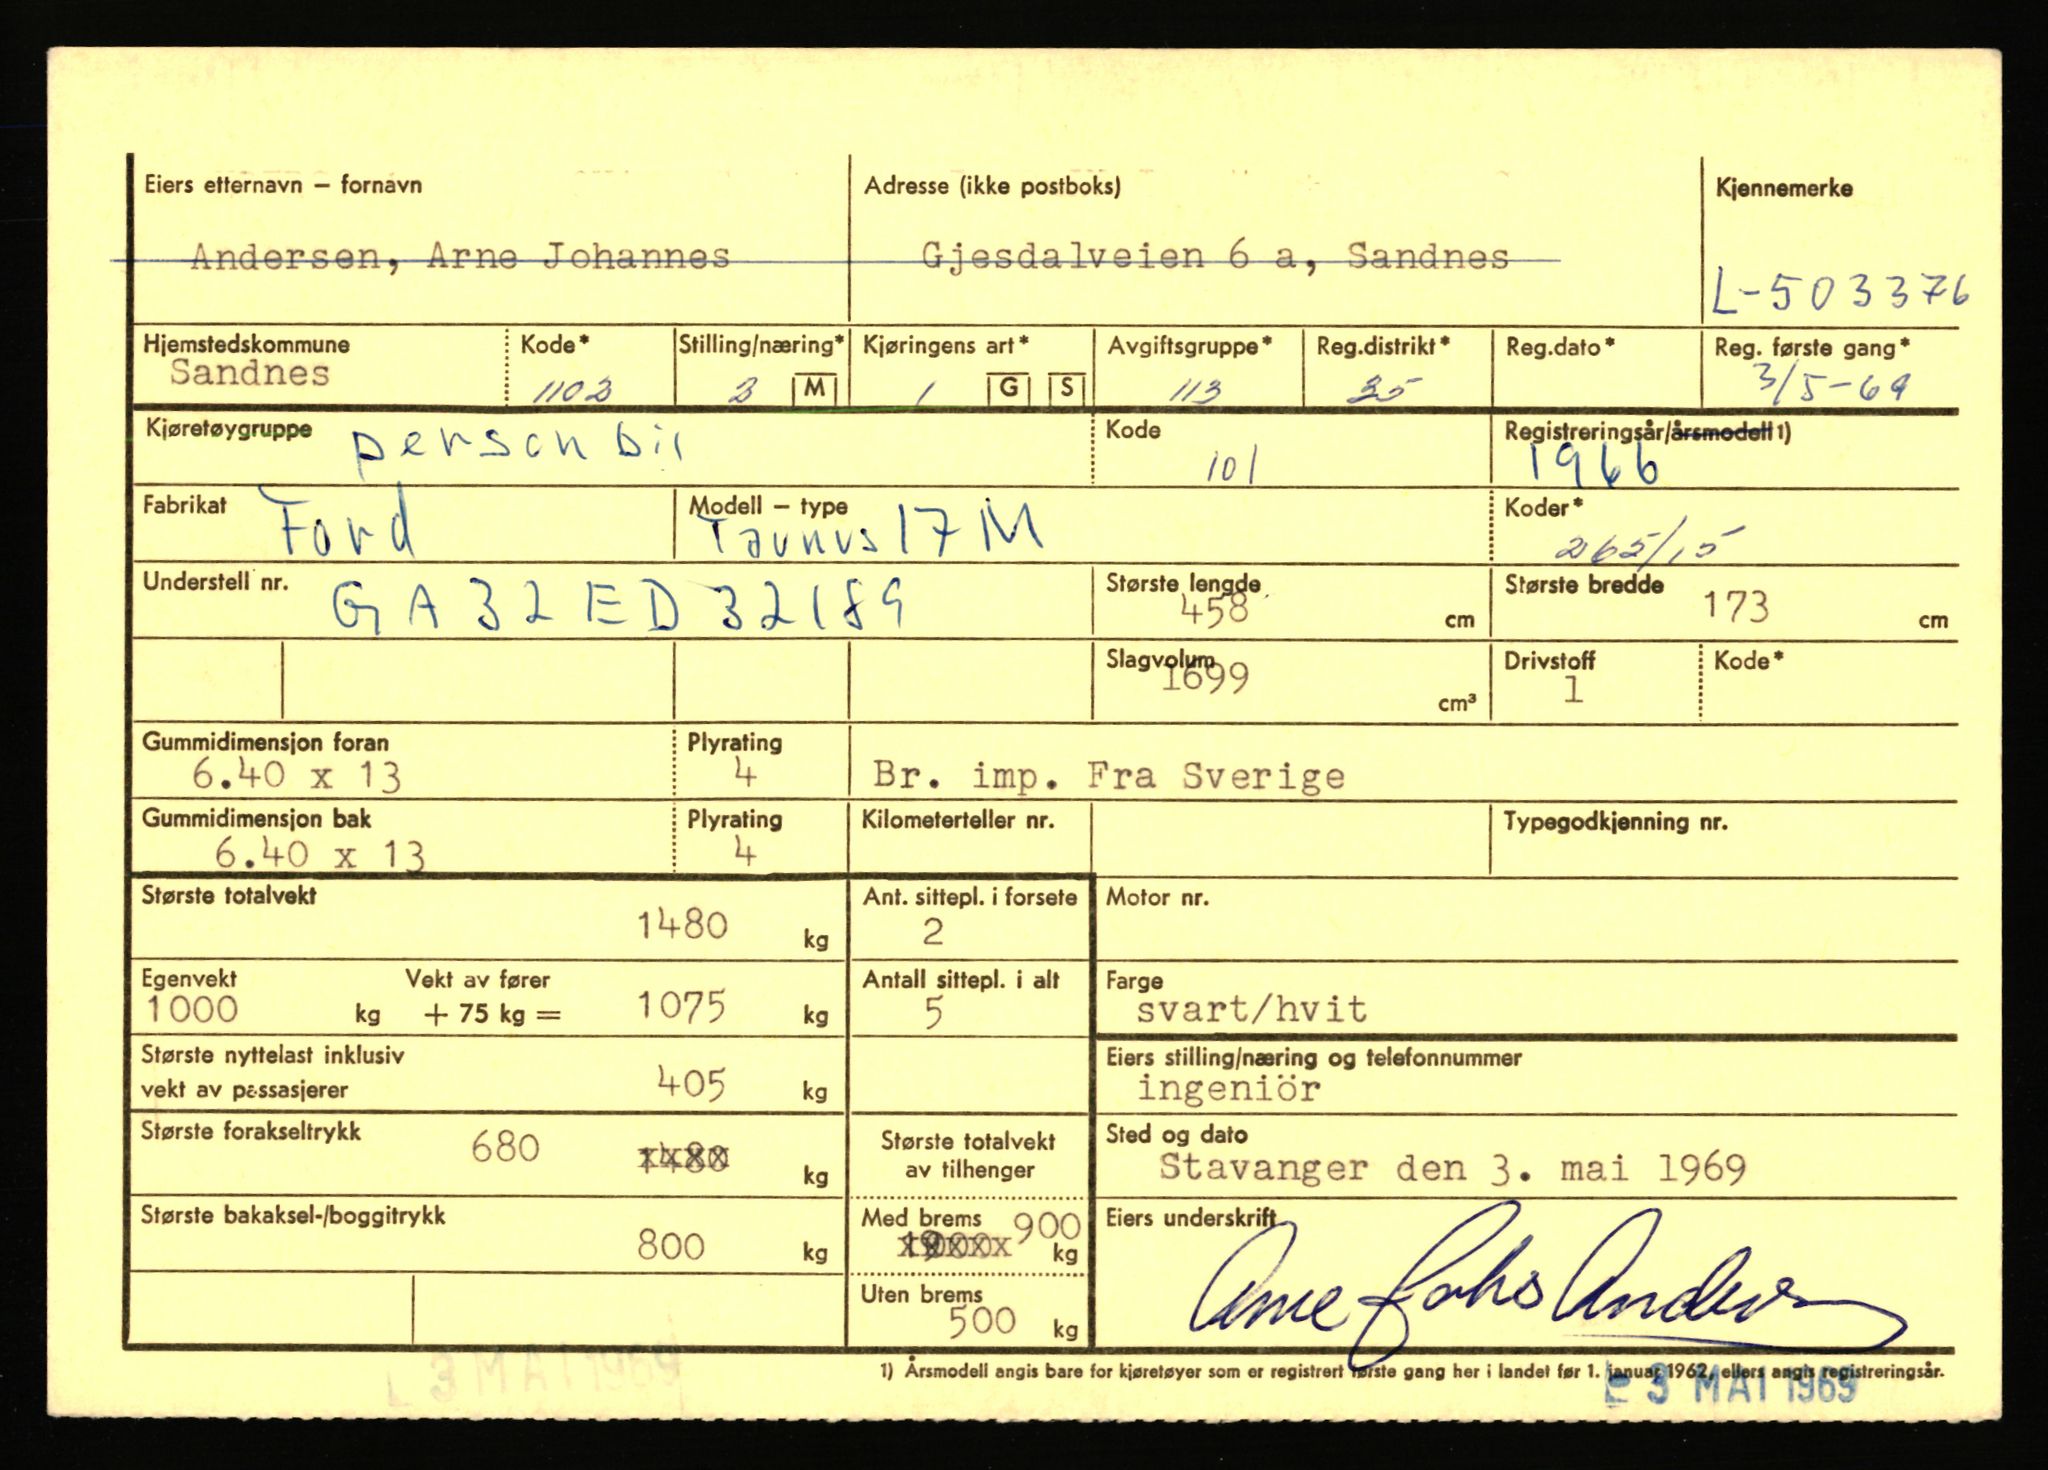 Eiers etternavn – fornavn Adresse (ikke postboks) Kjennemerke
Andersen, Arne Johannes Gjesdalveien 6 a, Sandnes
L-503376
Hjemstedskommune Kode* Stilling/næring* Kjøringens art* Avgiftsgruppe* Reg.distrikt* Reg.dato* Reg. første gang*
Sandnes 1102 2 M 1 G S 113 35 3/5-69
Kjøretøygruppe personbil Kode 101 Registreringsår/årsmodell 1)
1966
Fabrikat Ford Modell – type Taunus 17 M Koder*
265/15
Understell nr. GA32ED32189 Største lengde 458 cm Største bredde 173 cm
Slagvolum 1699 cm³ Drivstoff 1 Kode*
Gummidimensjon foran Plyrating
6.40 x 13 4 Br. imp. Fra Sverige
Gummidimensjon bak Plyrating Kilometerteller nr. Typegodkjenning nr.
6.40 x 13 4
Største totalvekt 1480 kg Ant. sittepl. i forsete 2 Motor nr.
Egenvekt Vekt av fører Antall sittepl. i alt Farge
1000 kg + 75 kg = 1075 kg 5 svart/hvit
Største nyttelast inklusiv Eiers stilling/næring og telefonnummer
vekt av passasjerer 405 kg ingeniör
Største forakseltrykk 680 1480 kg Største totalvekt Sted og dato
av tilhenger Stavanger den 3. mai 1969
Største bakaksel-/boggitrykk Med brems 900 Eiers underskrift
800 kg kg
Arne Johs Andersen
Uten brems
500 kg
1) Årsmodell angis bare for kjøretøyer som er registrert første gang her i landet før 1. januar 1962, ellers angis registreringsår.
3 MAI 1969
3 MAI 1969